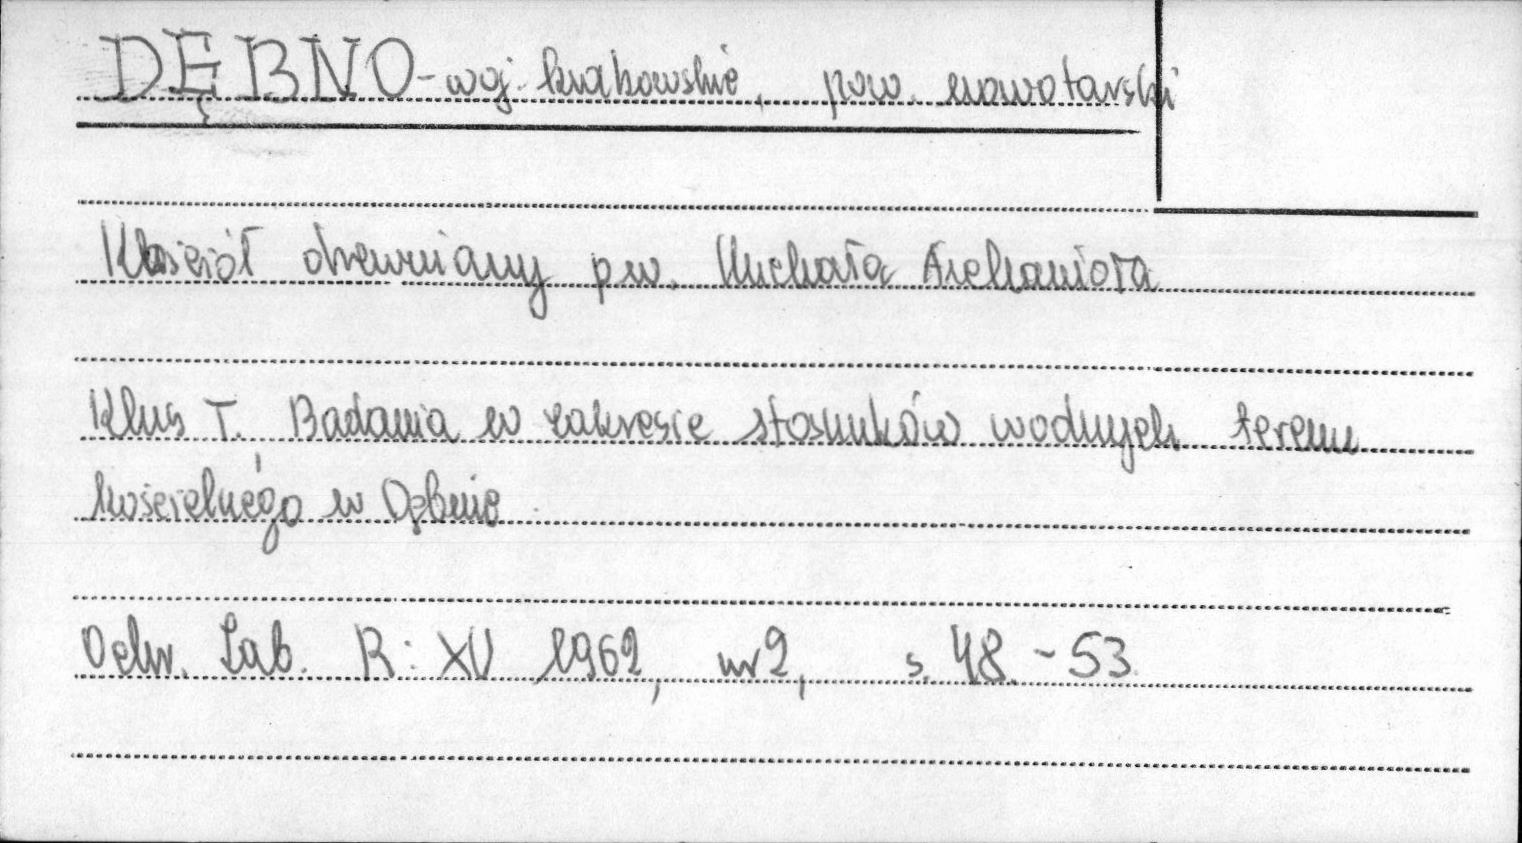 DĘBNO - woj. krakowskie, pow. nowotarski
Kościół drewniany p.w. Michała Archanioła
Klus T. Badania w zakresie stosunków wodnych terenu
kościelnego w Dębnie
Ochr. Zab. R: XV 1962, nr 2, s. 48. - 53.